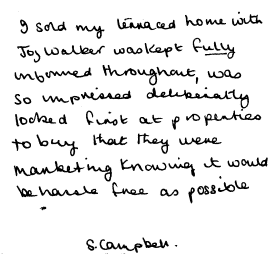 I sold my terraced home with
Joy Walker was kept fully
informed throughout, was
so impressed deliberially
looked first at properties
to buy that they were
marketing knowing it would
be hassle free as possible
S. Campbell.